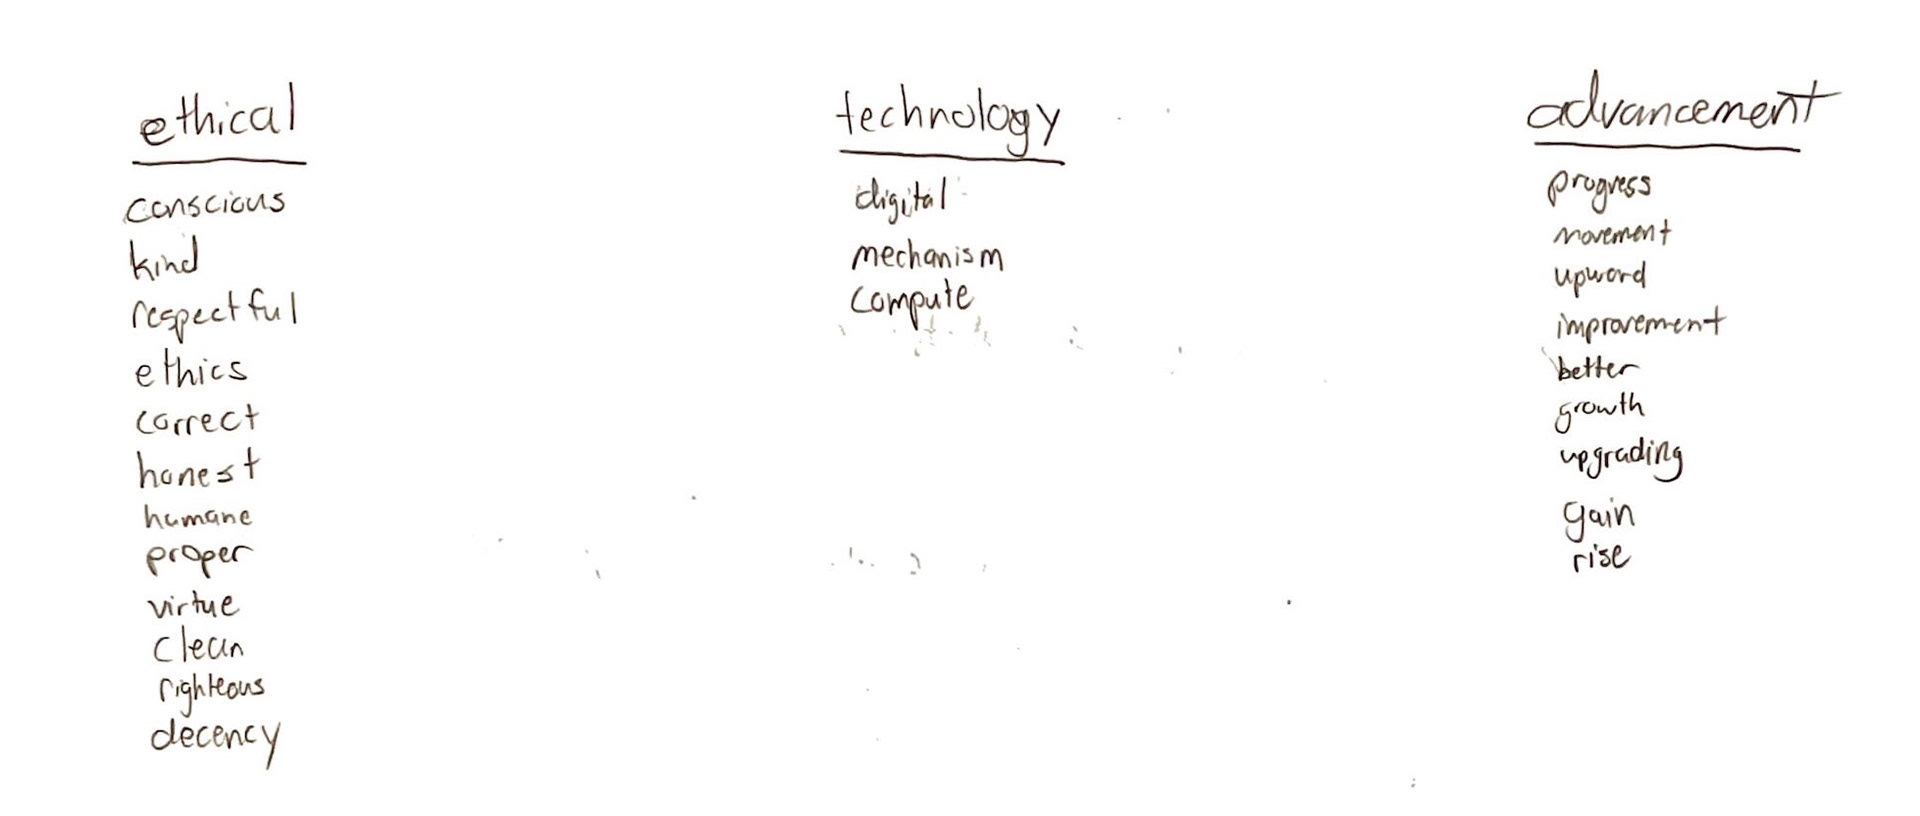 ethical
conscious
kind
respectful
ethics
correct
honest
humane
proper
virtue
clean
righteous
decency
technology
digital
mechanism
compute
advancement
progress
movement
upward
improvement
better
growth
upgrading
gain
rise